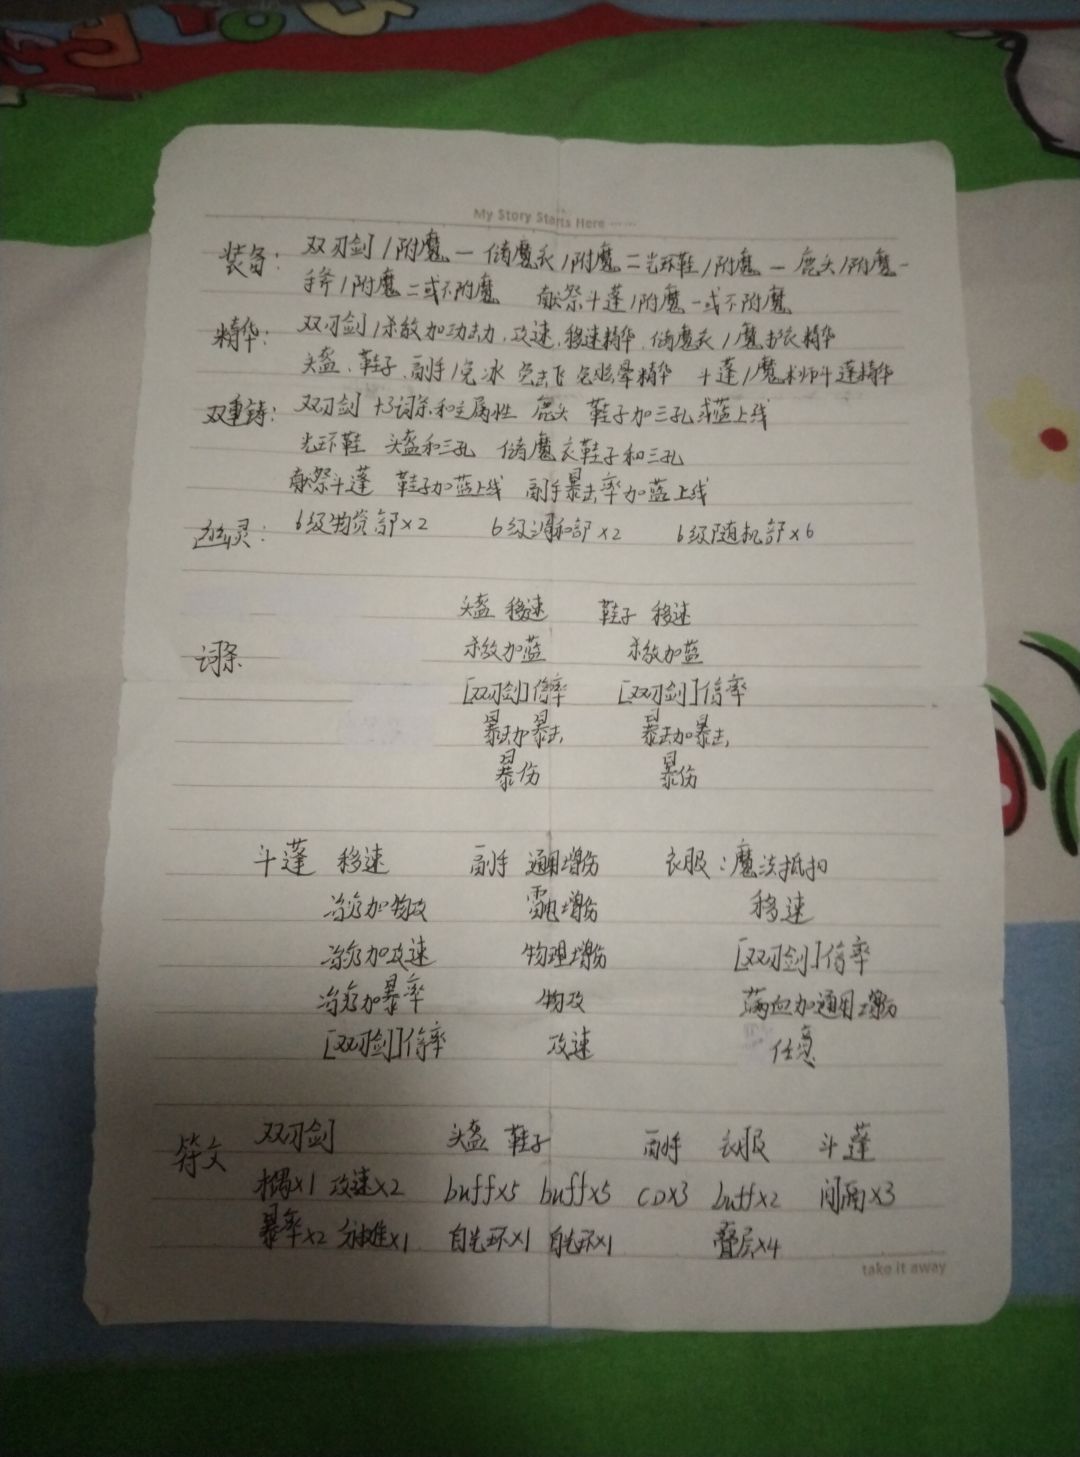 My Story Starts Here ······
装备: 双刃剑/附魔一 储魔衣/附魔二 光环鞋/附魔一 鹿头/附魔一
手斧/附魔二或不附魔 献祭斗蓬/附魔一或不附魔
精华: 双刃剑/杀敌加功击力,攻速,移速精华 储魔衣/魔击衣精华
头盔、鞋子、副手/免冰 免击飞 免眩晕精华 斗蓬/魔术师斗蓬精华
双重铸: 双刃剑 加词条和主属性 鹿头 鞋子加三孔或蓝上线
光环鞋 头盔和三孔 储魔衣鞋子和三孔
献祭斗蓬 鞋子加蓝上线 副手暴击率加蓝上线
幽灵: 6级物资部×2 6级调和部×2 6级随机部×6
头盔 移速 鞋子 移速
词条 杀敌加蓝 杀敌加蓝
[双刃剑]倍率 [双刃剑]倍率
暴击加暴击, 暴击加暴击,
暴伤 暴伤
斗蓬 移速 副手 通用增伤 衣服:魔法抵扣
治愈加物攻 雷电增伤 移速
治愈加攻速 物理增伤 [双刃剑]倍率
治愈加暴率 物攻 满血加通用增伤
[双刃剑]倍率 攻速 任意
符文 双刃剑 头盔 鞋子 副手 衣服 斗蓬
×1 攻速×2 buff×5 buff×5 CD×3 buff×2 间隔×3
暴率×2 分歧×1 自光环×1 自光环×1 叠层×4
take it away